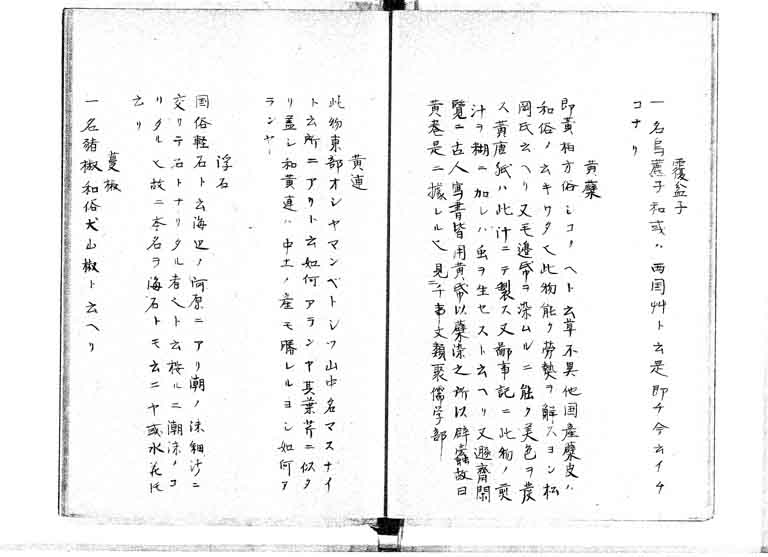 覆盆子
一名烏蔗子和或ハ西国艸ト云是即チ今云イチ
コナリ
黄蘗
即黄柏方俗シコノヘト云草不異他国産蘗皮ハ
和俗ノ云キワタ也此物能ク労熱ヲ解スヨシ松
岡氏云ヘリ又毛邉帋ヲ染ムルニ能ク美色ヲ發
人黄唐紙ハ此汁ニテ製ス又鄙事記ニ此物ノ煎
汁ヲ糊ニ加レハ虫ヲ生セスト云ヘリ又遯齋閑
覽ニ古人寫書皆用黄帋以蘗染之所以辟蠧故曰
黄巻是ニ據レル也見ニ事文類聚儒学部
黄連
此物東部オシヤマンベトシツ山中名マスナイ
ト云所ニアリト云如何アランヤ其葉芹ニ似タ
リ蓋シ和黄連ハ中土ノ産モ勝レルヨシ如何ア
ランヤ
浮石
国俗軽石ト云海辺ノ河原ニアリ潮ノ沫細沙ニ
交リテ石トナリタル者也ト云桉ルニ潮沫ノコ
リタル也故ニ本名ヲ海石トモ云ニヤ或水花氏
云リ
蔓椒
一名猪椒和俗犬山椒ト云ヘリ